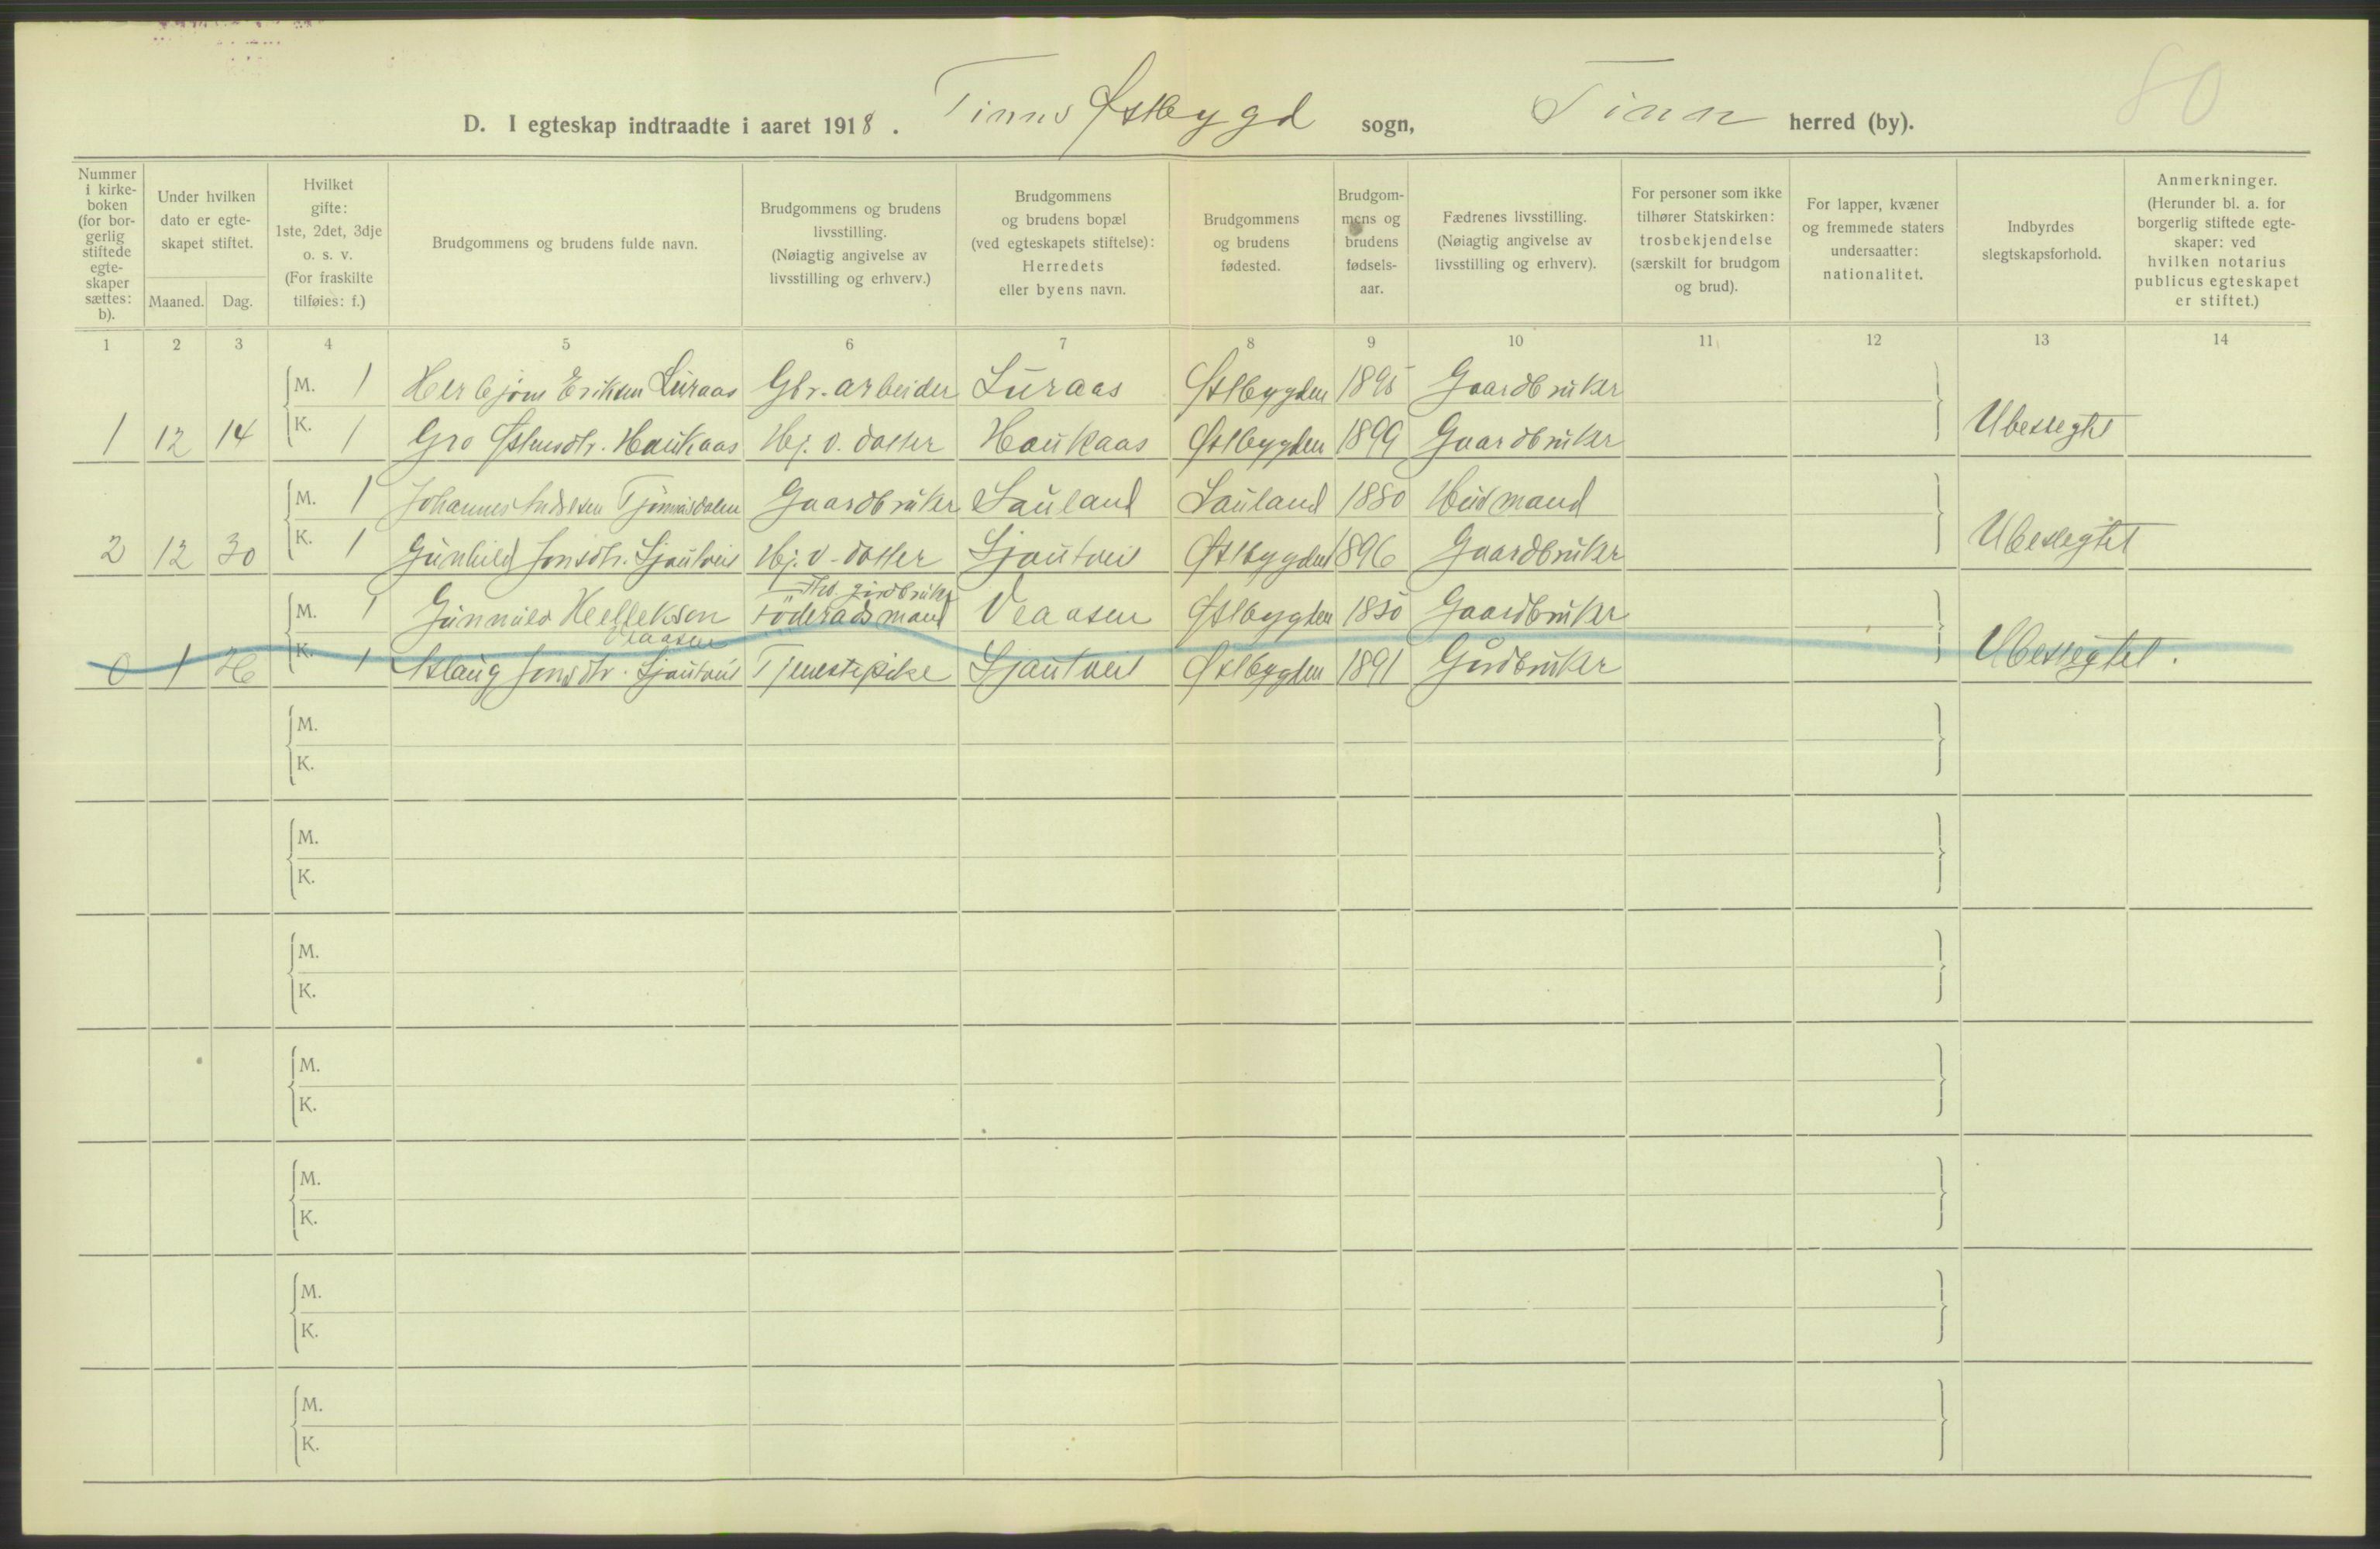 80
D. I egteskap indtraadte i aaret 1918. Tinns Østbygd sogn, Tinn herred (by).
Nummer i kirkeboken (for borgerlig stiftede egteskaper sættes: b).
Under hvilken dato er egteskapet stiftet.
Maaned. Dag.
Hvilket gifte: 1ste, 2det, 3dje o. s. v. (For fraskilte tilføies: f.)
Brudgommens og brudens fulde navn.
Brudgommens og brudens livsstilling. (Nøiagtig angivelse av livsstilling og erhverv.)
Brudgommens og brudens bopæl (ved egteskapets stiftelse): Herredets eller byens navn.
Brudgommens og brudens fødested.
Brudgommens og brudens fødselsaar.
Fædrenes livsstilling. (Nøiagtig angivelse av livsstilling og erhverv).
For personer som ikke tilhører Statskirken: trosbekjendelse (særskilt for brudgom og brud).
For lapper, kvæner og fremmede staters undersaatter: nationalitet.
Indbyrdes slegtskapsforhold.
Anmerkninger. (Herunder bl. a. for borgerlig stiftede egteskaper: ved hvilken notarius publicus egteskapet er stiftet.)
1 2 3 4 5 6 7 8 9 10 11 12 13 14
M. 1 Herbjörn Eriksen Luraas Gbr. arbeider Luraas Østbygden 1895 Gaardbruker
1 12 14 K. 1 Gro Østensdtr. Haukaas Hj. v. datter Haukaas Østbygden 1899 Gaardbruker Ubeslegtet
M. 1 Johannes Gaardbruker Sauland Sauland 1880 Husmand
2 12 30 K. 1 Gunhild Jonsdtr. Sjautveit Hj. v. datter Sjautveit Østbygden 1896 Gaardbruker Ubeslegtet
gårdbruker
M. 1 Gunnulv Helleksen föderadsmand Vaaasen Østbygden 1850 Gaardbruker
Vaaasen
0 1 K. 1 Aslaug Jonsdtr. Sjautveit Tjenestepike Sjautveit Østbygden 1891 Gårdbruker Ubeslegtet.
M.
K.
M.
K.
M.
K.
M.
K.
M.
K.
M.
K.
M.
K.